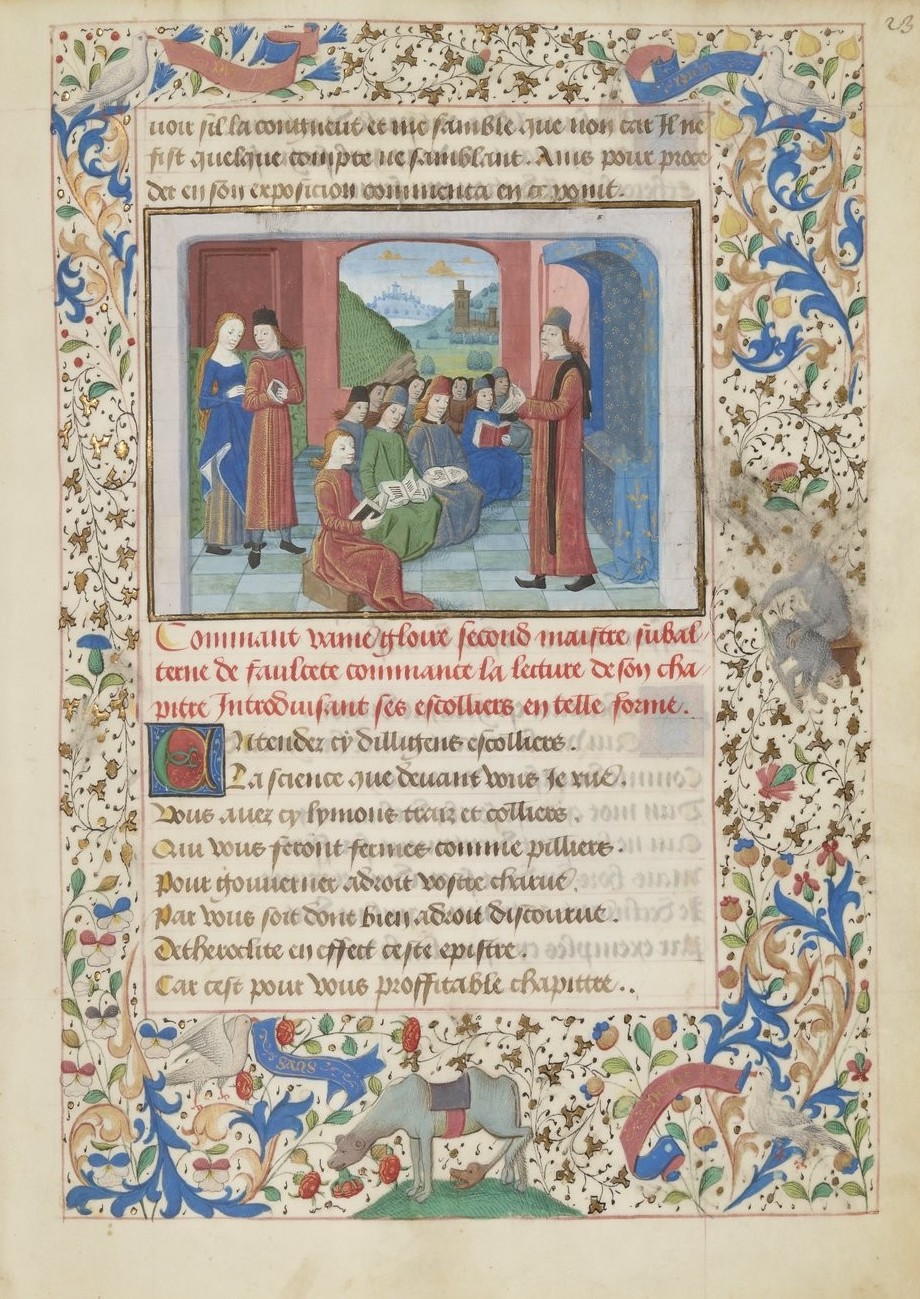 23
uoir sil la contineut et me samble que non car Il ne
fist quelque compte ne samblant. Amis pour proce
der en son exposicion commenca en ce point.
sans
Commant vaine gloire second maistre subal
terne de faulcete commance la lecture de son cha
pitre Introduisant ses escolliers en telle forme.
Entendez cy dilligens escolliers.
La science que deuant vous Je rue.
Vous auez cy lymons traiz et colliers.
Qui vous seront fermes comme pilliers.
Pour gouuerner adroit vostre charue
Par vous soit dont bien adroit discourue.
Detheroclite en effect ceste epistre.
Car cest pour vous proffitable chapittre..